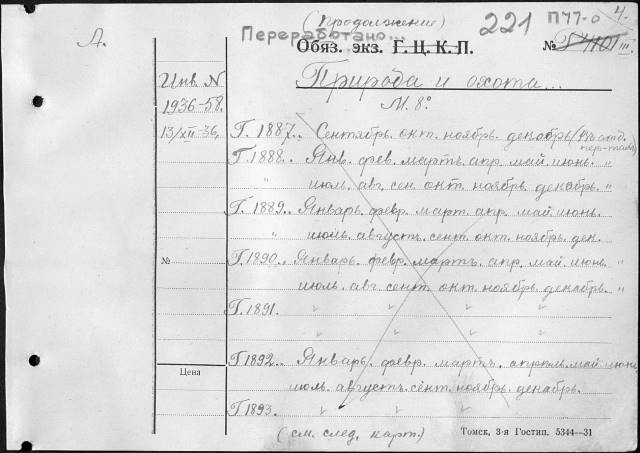 (Продолжение) 221 П77-0 4.
Переработано...
А. Обяз. экз. Г. Ц. К. П. № III.
Инв. N Природа и охота...
1936-58. М. 8°
13/XII-36, Г. 1887. Сентябрь. окт. ноябрь. декабрь
Г. 1888. Янв. фев. мартъ. апр. май. июнь. "
" июль. авг. сен. окт. ноябрь. декабрь. "
Г. 1889. Январь. февр. март. апр. май. июнь.
" июль. августъ. сент. окт. ноябрь. дек.
№ Г. 1890. Январь. февр. мартъ. апр. май. июнь. "
июль. авг. сент. окт. ноябрь. декабрь. "
Г. 1891. " " " "
" " " "
Г. 1892. Январь. февр. мартъ. апрель. май. июнь
Цена июль. августъ. сент. ноябрь. декабрь.
Г. 1893. " " "
(см. след. карт.) Томск, 3-я Гостип. 5344—31